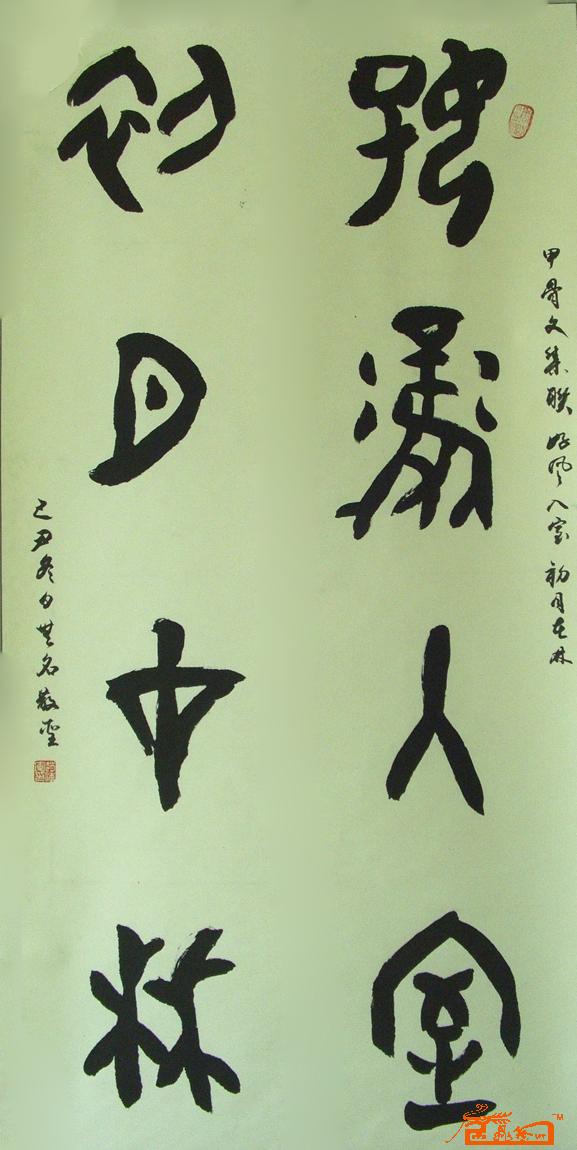 甲骨文集联 好风入室 初月在林
好风入室
初月在林
己丑冬日